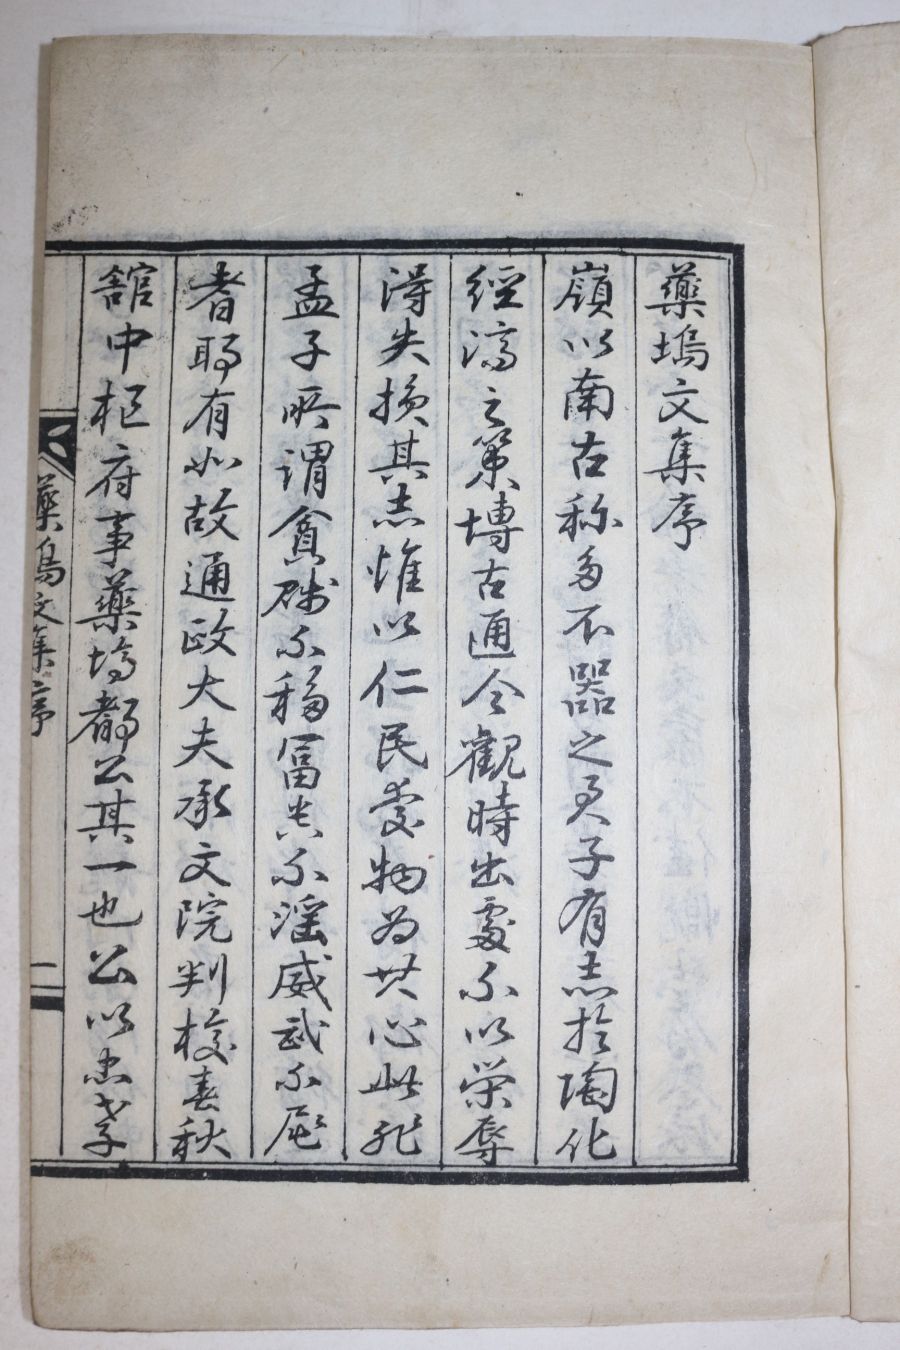 藥塢文集序
嶺以南古称多不器之君子有志於陶化
經濟之策博古通今觀時出處不以榮辱
得失換其志惟以仁民愛物為其心此非
孟子所谓貧賤不移冨貴不淫威武不屈
者耶有如故通政大夫承文院判校春秋
舘中枢府事藥塢都公其一也公以忠孝
藥塢文集序
一